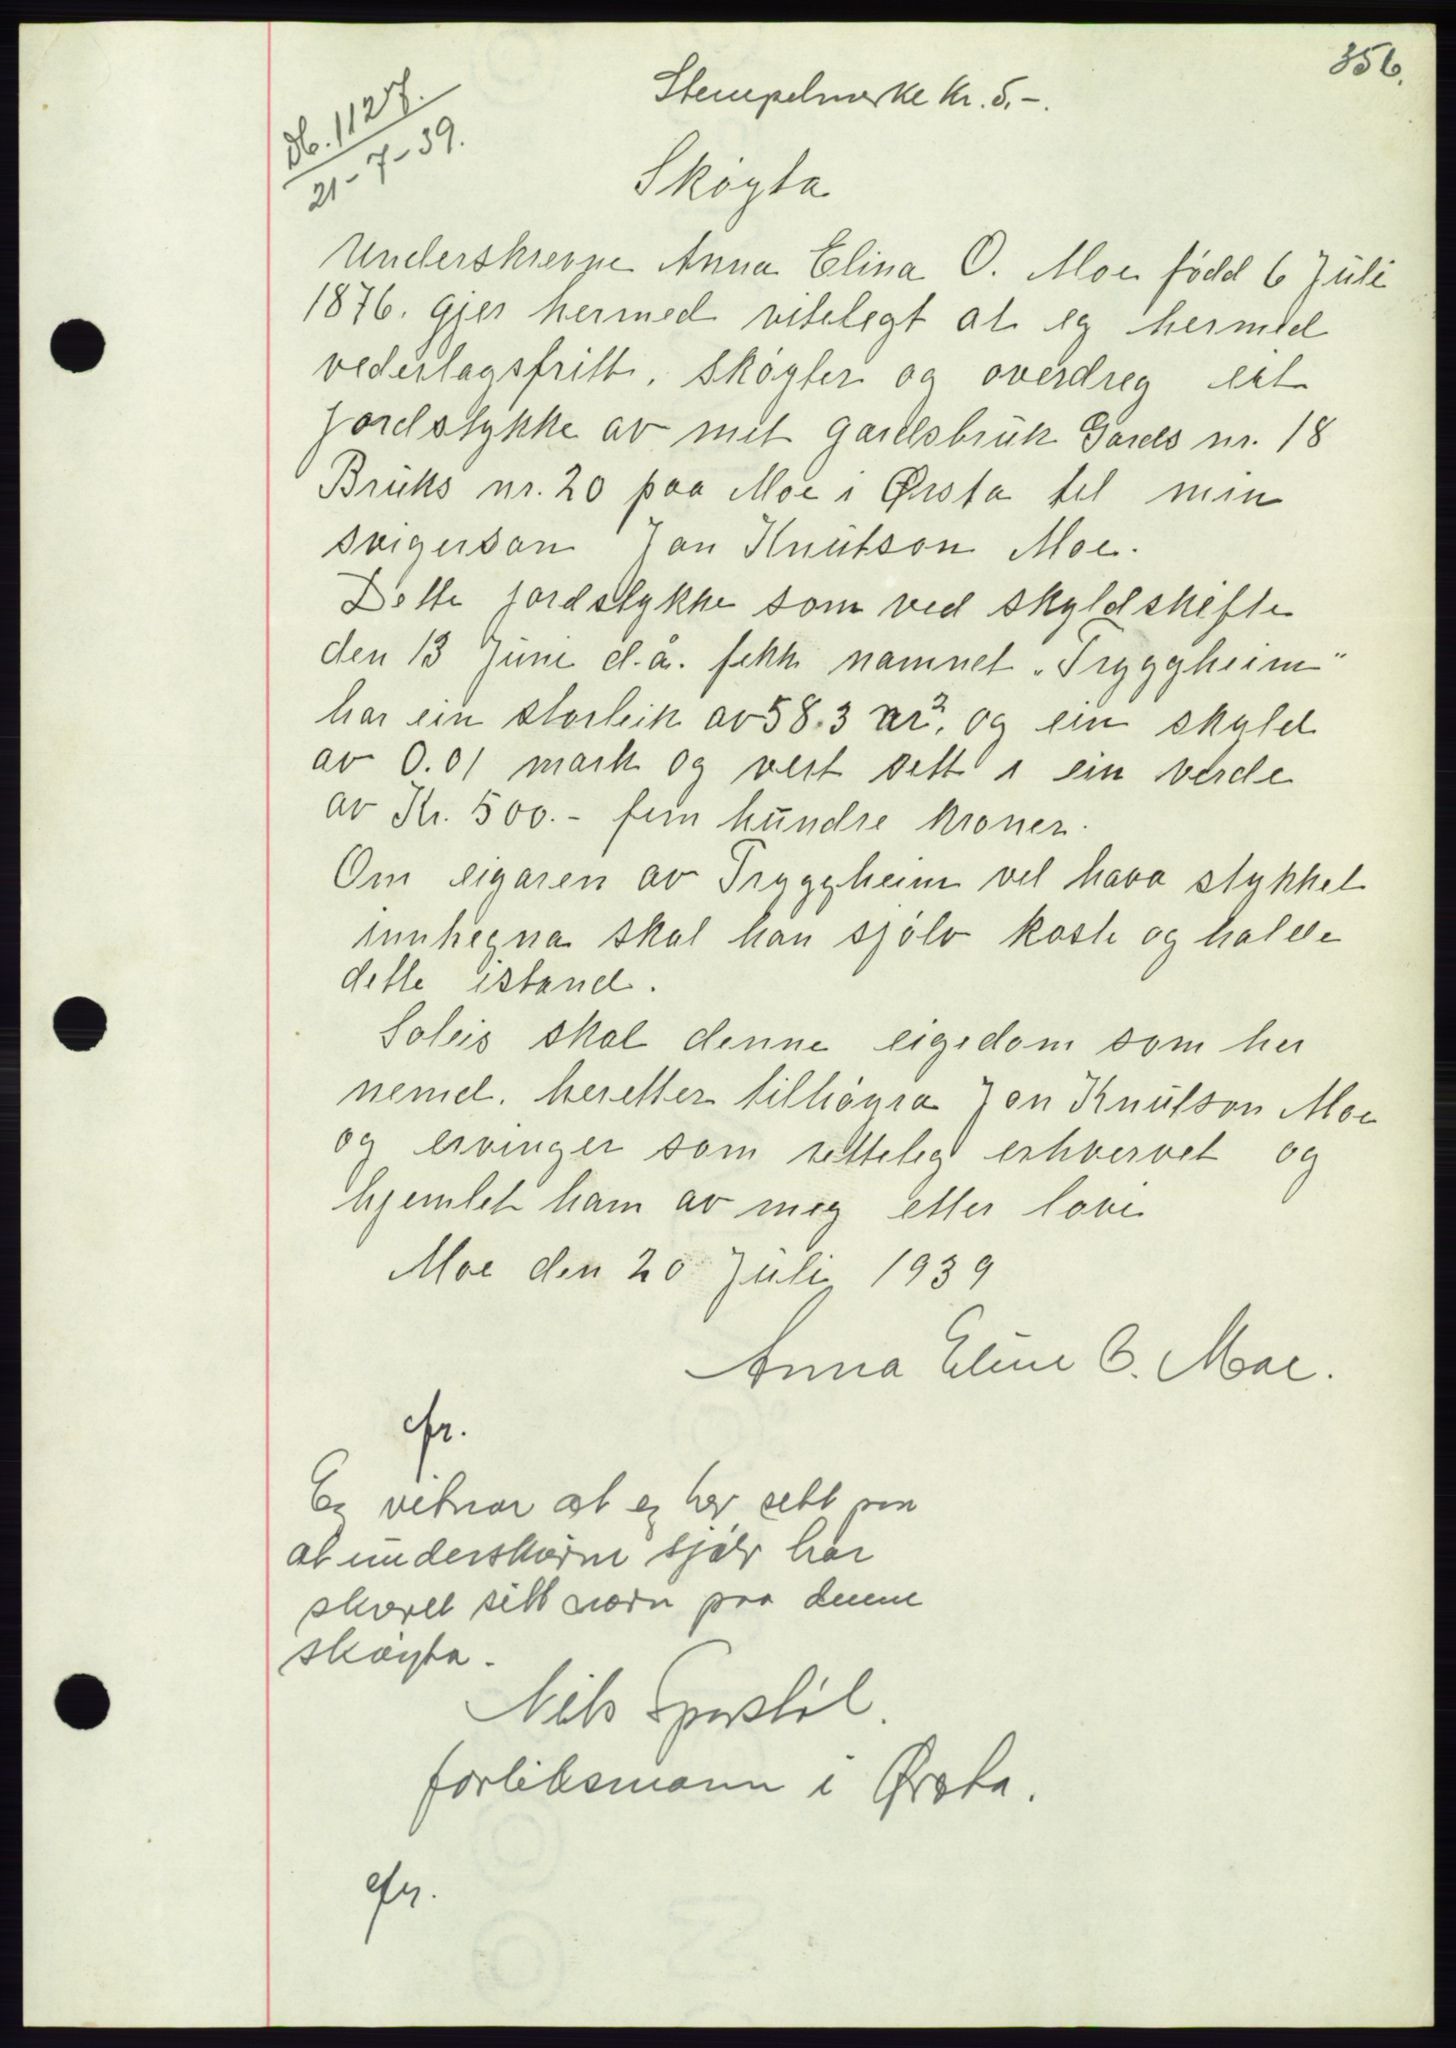 356.
Stempelmerke kr. 5.-.
Db. 1127.
21-7-39.
Skøyta
Underskrevne Anna Elina O. Moe fødd 6 Juli
1876. gjer hermed vitelegt at eg hermed
vederlagsfritt, skøyter og overdreg eit
jordstykke av mit gardsbruk Gards nr. 18
Bruks nr. 20 paa Moe i Ørsta til min
svigerson Jon Knutson Moe.
Dette jordstykke som ved skyldskifte
den 13 Juni d.å. fekk namnet "Tryggheim"
har ein storleik av 58.3 ar². og ein skyld
av 0.01 mark og vert sett i ein verde
av Kr. 500.- fem hundre kroner.
Om eigaren av Tryggheim vil hava stykket
innhegna skal han sjølv koste og halde
dette istand.
Soleis skal denne eigedom som her
nemd. heretter tilhøyra Jon Knutson Moe
og ervinger som retteleg erhvervet og
hjemlet ham av meg etter lovi
Moe den 20 Juli 1939
Anna Eline O. Moe.
cfr.
Eg vitnar at eg her sett paa
at underskrivne sjølv har
skrevet sitt navn paa denne
skøyta.
Nils
forliksmann i Ørsta.
cfr.